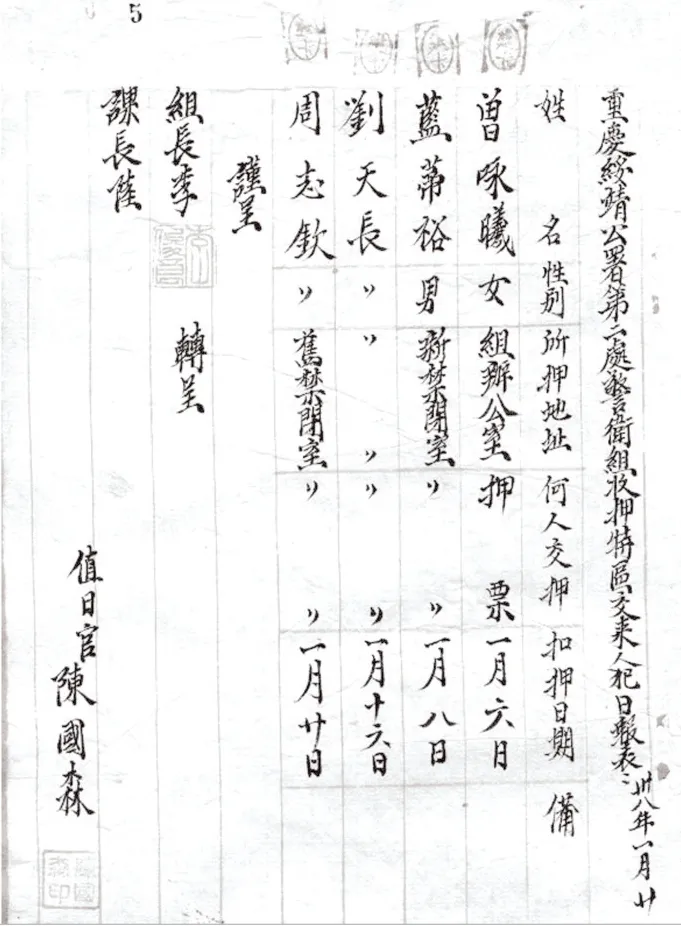 5
重慶綏靖公署第二處警衛組收押特區交來人犯日報表 卅八年一月廿
姓名 性別 所押地址 何人交押 扣押日期 備
曾咏曦 女 組辦公室 押票 一月六日
藍蒂裕 男 新禁閉室 〃 〃 一月八日
劉天長 〃 〃 〃 〃 〃 一月十六日
周志欽 〃 舊禁閉室 〃 〃 一月廿日
謹呈
組長李 轉呈
課長陸
值日官陳國森
陳國森印